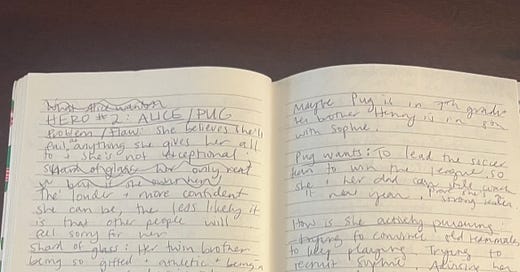 What Alice wants
HERO #2: ALICE/PUG
Problem/Flaw: She believes she'll
fail anything she gives her all
to + she's not exceptional
Shard of glass: her only real
The louder + more confident
she can be, the less likely it
is that other people will
feel sorry for her
Shard of glass: Her twin brother
being so gifted + athletic + being
Maybe Pug is in 7th grade
her brother Henry is in 8th
with Sophie.
Pug wants: To lead the soccer
team to win the league so
she + her dad can still coach
it next year,
How is she actively pursuing
trying to convince old teammates
to keep playing. Trying to
recruit Sophie.